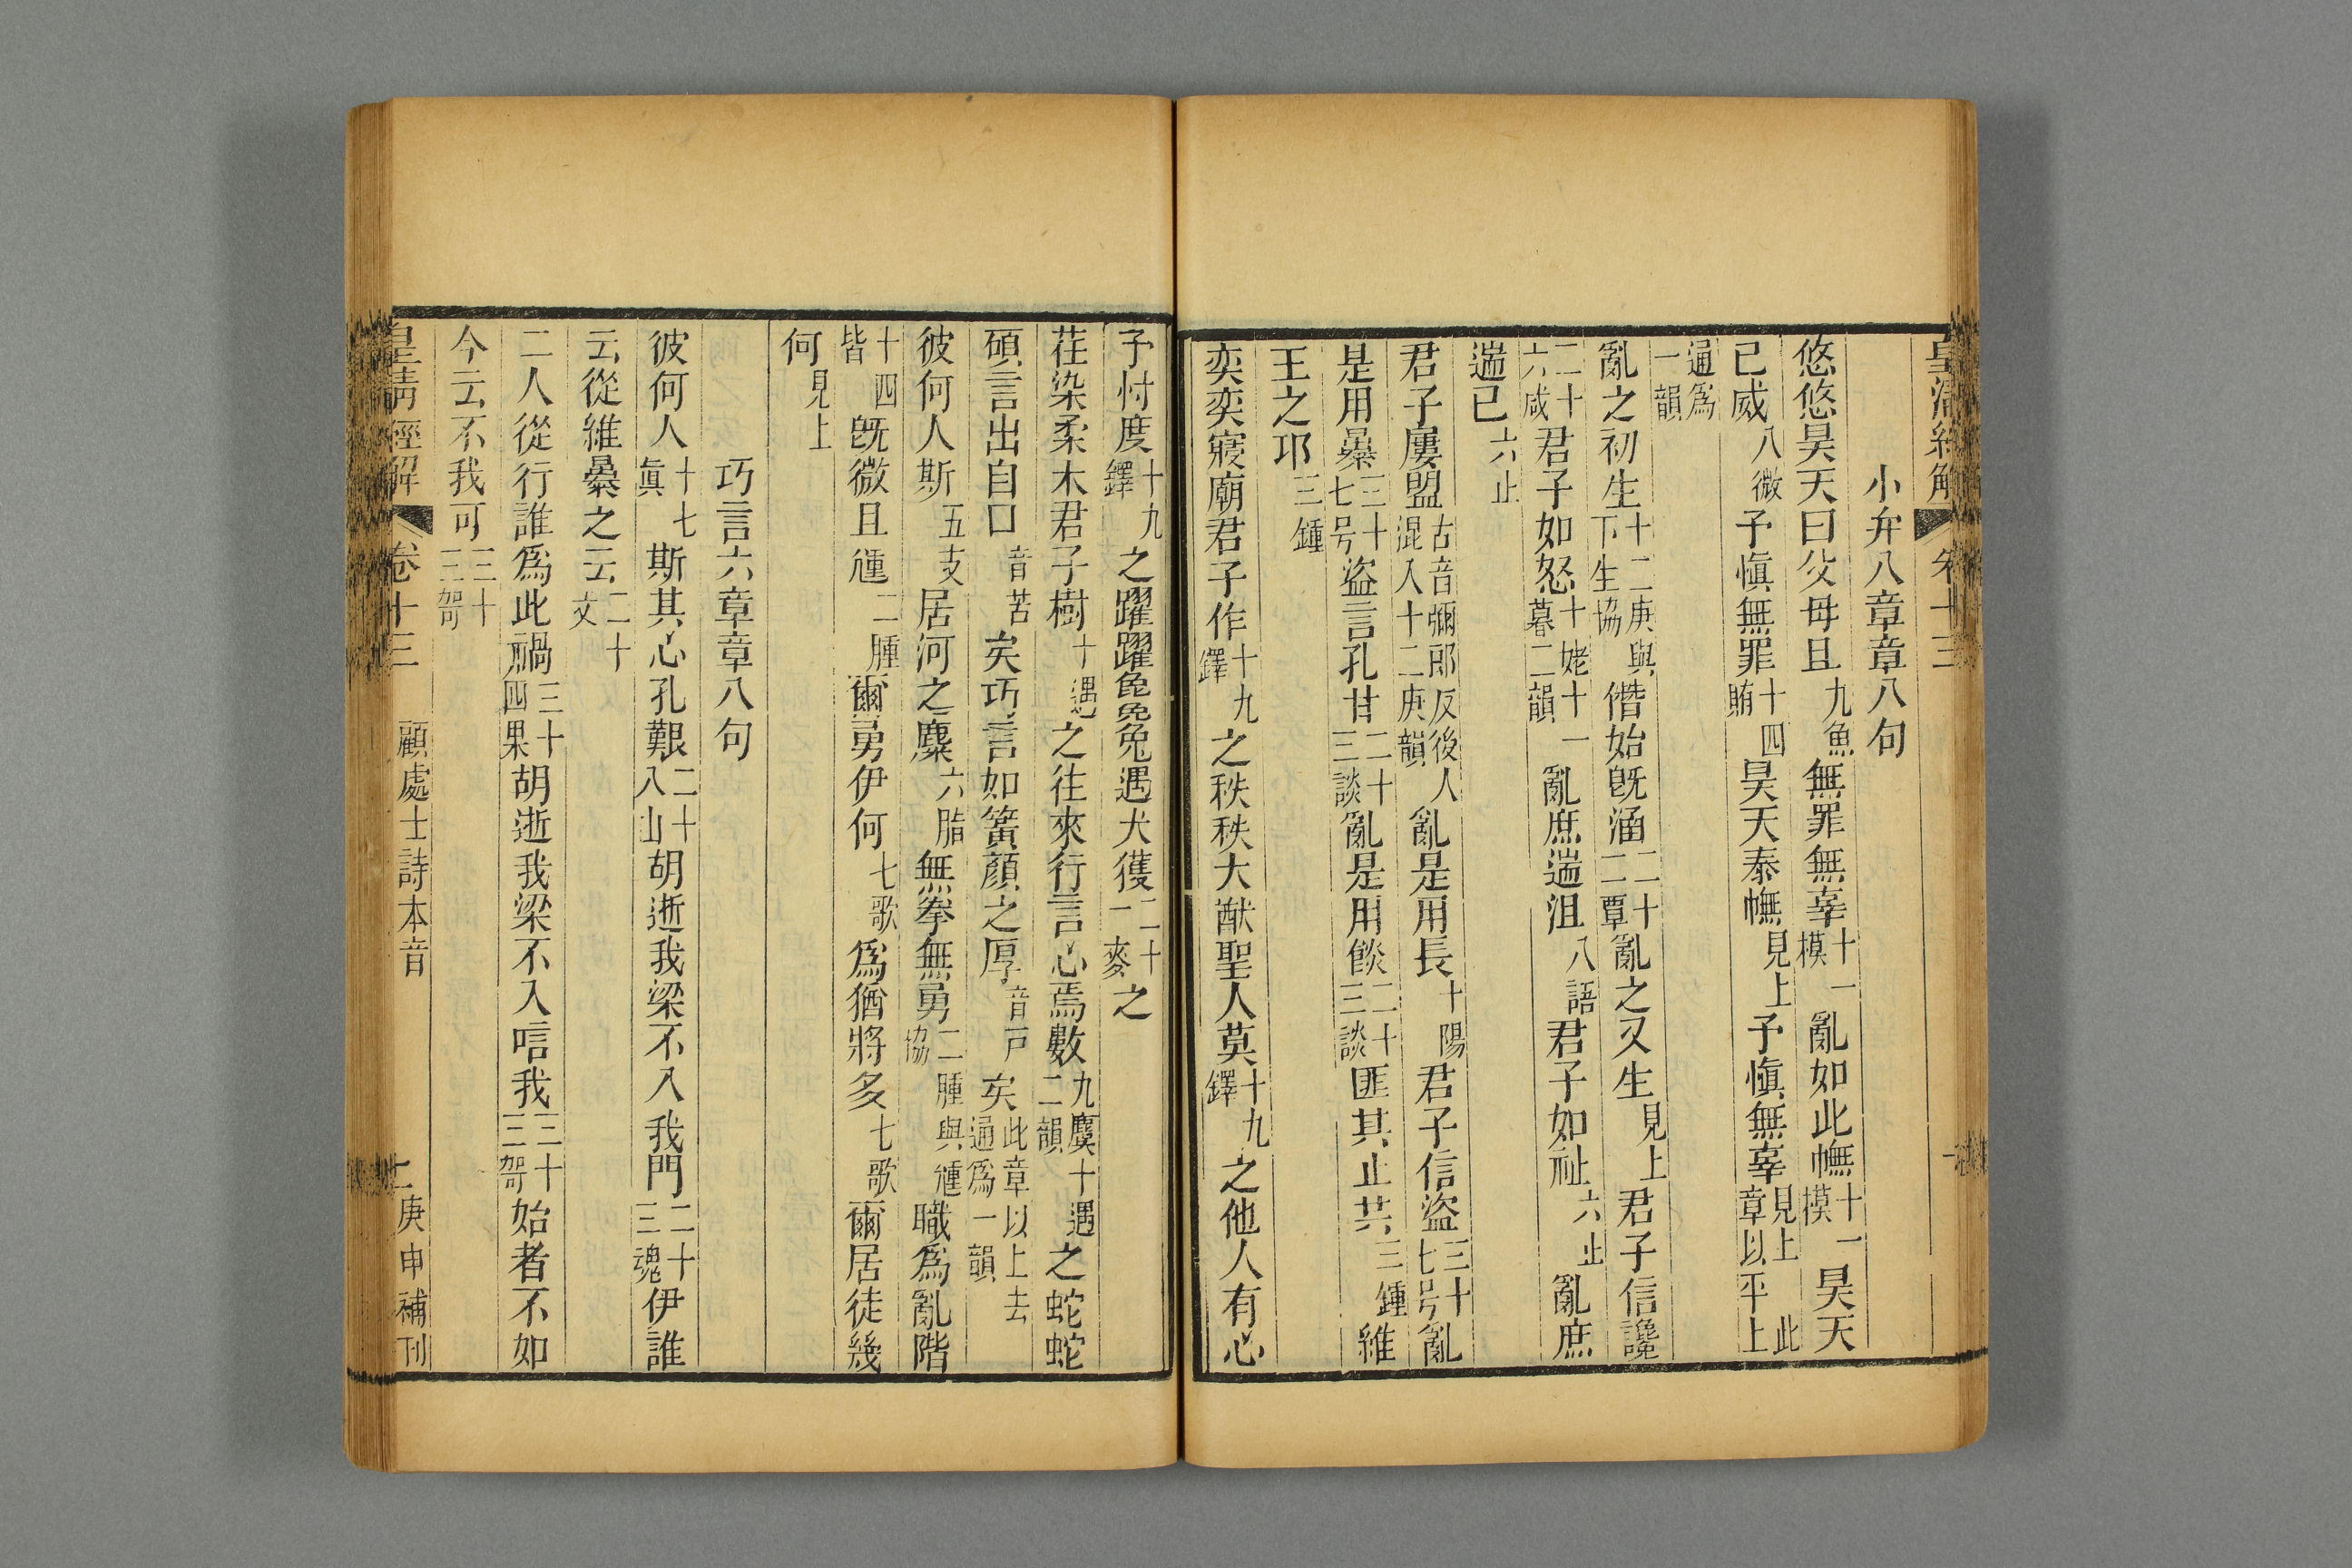 皇清經解 卷十三
小弁八章章八句
悠悠昊天曰父母且九魚無罪無辜十一模亂如此幠十一模昊天
已威八微予慎無罪十四賄昊天泰幠見上予慎無辜見上 此章以平上
通爲一韻
亂之初生十二庚與下生協僭始旣涵二十二覃亂之又生見上君子信讒
二十六咸君子如怒十姥十一暮二韻亂庶遄沮八語君子如祉六止亂庶
遄已六止
君子屢盟古音彌郎反後人混入十二庚韻亂是用長十陽君子信盜三十七号亂
是用㬥三十七号盜言孔甘二十三談亂是用餤二十三談匪其止共三鍾維
王之邛三鍾
奕奕寢廟君子作十九鐸之秩秩大猷聖人莫十九鐸之他人有心
予忖度十九鐸之躍躍毚兔遇犬獲二十一麥之
荏染柔木君子樹十遇之往來行言心焉數九麌十遇二韻之蛇蛇
碩言出自口音苦矣巧言如簧顏之厚音戸矣此章以上去通爲一韻
彼何人斯五支居河之麋六脂無拳無勇二腫與尰協職爲亂階
十四皆旣微且尰二腫爾勇伊何七歌爲猶將多七歌爾居徒幾
何見上
巧言六章章八句
彼何人十七眞斯其心孔艱二十八山胡逝我梁不入我門二十三魂伊誰
云從維㬥之云二十文
二人從行誰爲此禍三十四果胡逝我梁不入唁我三十三哿始者不如
今云不我可三十三哿
皇清經解 卷十三 顧處士詩本音 二 庚申補刊